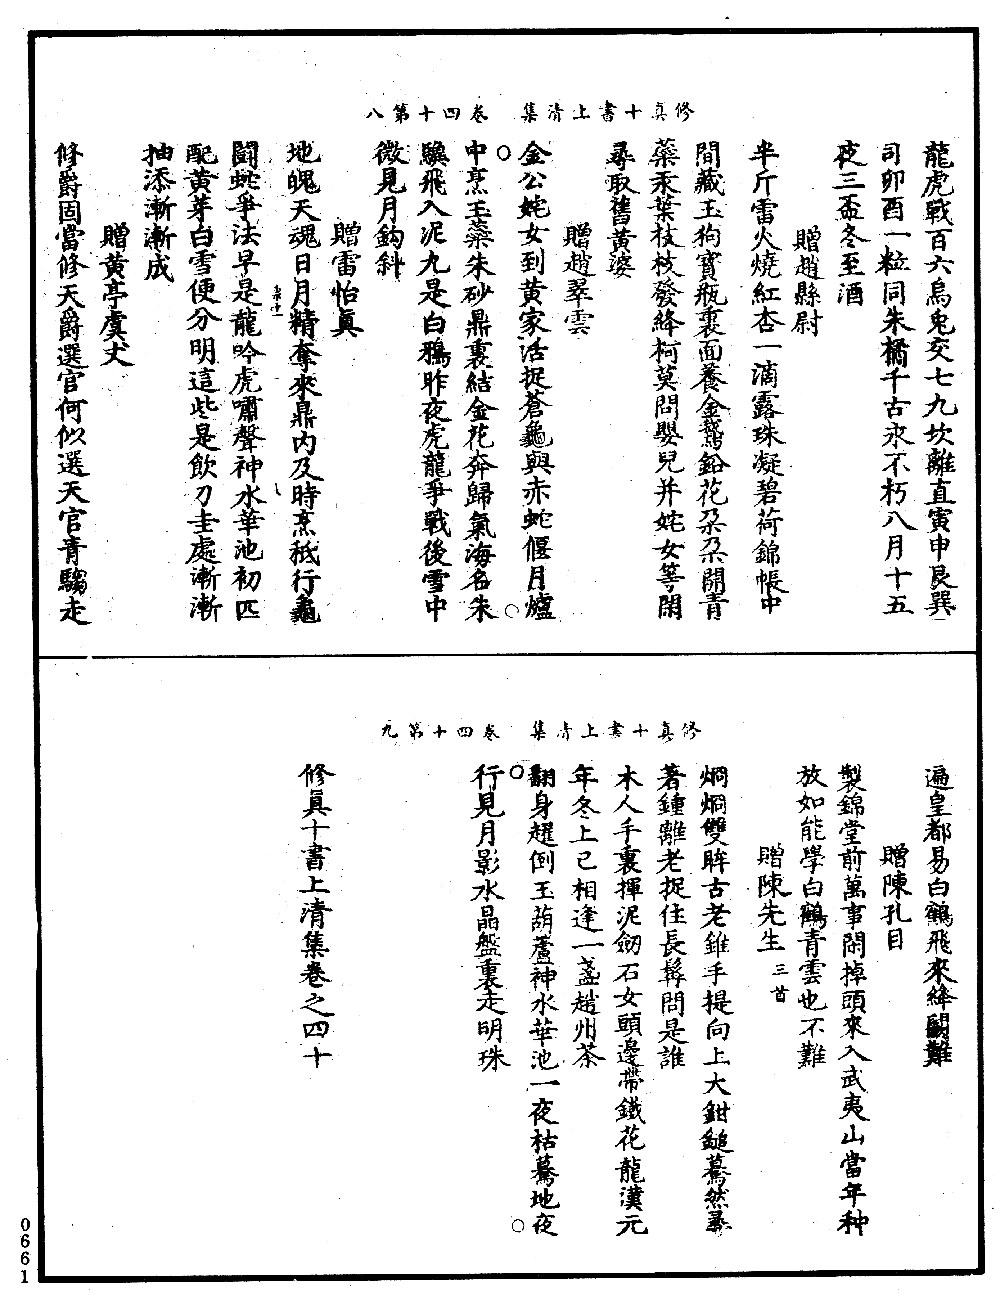 修真十書上清集　卷四十第八
龍虎戰百六烏兎交七九坎離直寅申艮巽
司卯酉一粒同朱橘千古永不朽八月十五
夜三盃冬至酒
贈趙縣尉
半斤雷火燒紅杏一滴露珠凝碧荷錦帳中
間藏玉狗寳瓶裏面養金鵞鉛花朶朶開青
蘂汞葉枝枝發絳柯莫問嬰兒并姹女等閑
尋取舊黄婆
贈趙翠雲
金公姹女到黄家活捉蒼龜與赤蛇偃月爐
中烹玉蘂朱砂鼎裏結金花奔歸氣海名朱
驥飛入泥九是白鴉昨夜虎龍爭戰後雪中
微見月鈎斜
贈雷怡眞
地魄天魂日月精奪來鼎内及時烹秖行龜
鬪蛇爭法早是龍吟虎嘯聲神水華池初匹
配黄芽白雪便分明這些是飲刀圭處漸漸
抽添漸漸成
贈黄亭虞丈
修爵固當修天爵選官何似選天官青騶走
修真十書上清集　卷四十第九
遍皇都易白鶴飛來絳闕難
贈陳孔目
製錦堂前萬事閑掉頭來入武夷山當年种
放如能學白鶴青雲也不難
贈陳先生三首
烱烱雙眸古老錐手提向上大鉗鎚驀然尋
著鍾離老捉住長髯問是誰
木人手裏揮泥劒石女頭邊帶鐵花龍漢元
年冬上巳相逢一盞趙州茶
翻身趯倒玉葫蘆神水華池一夜枯驀地夜
行見月影水晶盤裏走明珠
修眞十書上清集卷之四十
0661